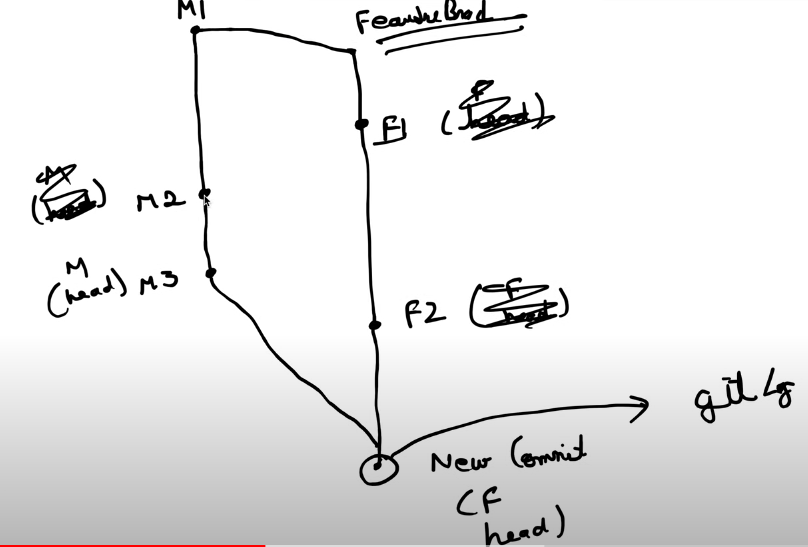 M1
Feature Brad
F1 (F
head)
M
(head) M2
M
(head) M3
F2 (F
head)
git log
New Commit
(F
head)